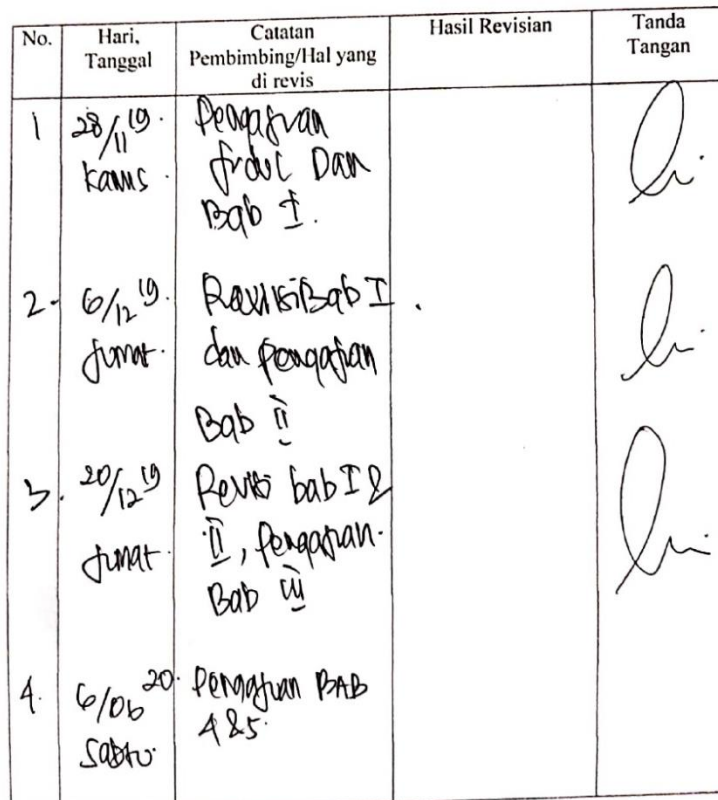 No. Hari, Tanggal Catatan Pembimbing/Hal yang di revis Hasil Revisian Tanda Tangan
1 28/11 19. Pengajuan
Kamis. Judul Dan
Bab I.
2. 6/12 19. Revisi Bab I.
Jumat. dan pengajuan
Bab II
3. 20/12 19 Revisi bab I &
Jumat. II, Pengajuan.
Bab III
4. 6/06 20. Pengajuan BAB
Sabtu. 4 & 5.